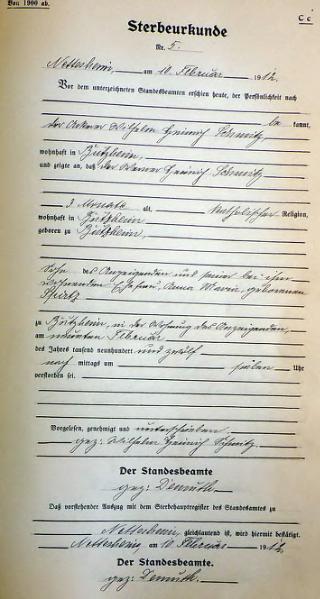 Von 1900 ab.
C c
Sterbeurkunde
Nr. 5.
Nettersheim, am 10. Februar 1912.
Vor dem unterzeichneten Standesbeamten erschien heute, der Persönlichkeit nach
be kannt,
der Ackerer Wilhelm Heinrich Schmitz,
wohnhaft in Zützheim,
und zeigte an, daß der Heinrich Schmitz
3 Monate alt, katholischer Religion,
wohnhaft in Zützheim
geboren zu Zützheim,
Sohn des Anzeigenden und seiner bei ihm
wohnenden Ehefrau, Anna Maria, geborenen
zu Zützheim, in der Wohnung des Anzeigenden,
am neunten Februar
des Jahres tausend neunhundert und zwölf
nach mittags um sieben Uhr
verstorben sei.
Vorgelesen, genehmigt und unterschrieben
gez: Wilhelm Heinrich Schmitz.
Der Standesbeamte
gez: Demuth.
Daß vorstehender Auszug mit dem Sterbehauptregister des Standesamts zu
Nettersheim, gleichlautend ist, wird hiermit bestätigt.
Nettersheim, am 10. Februar 1912
Der Standesbeamte.
gez: Demuth.